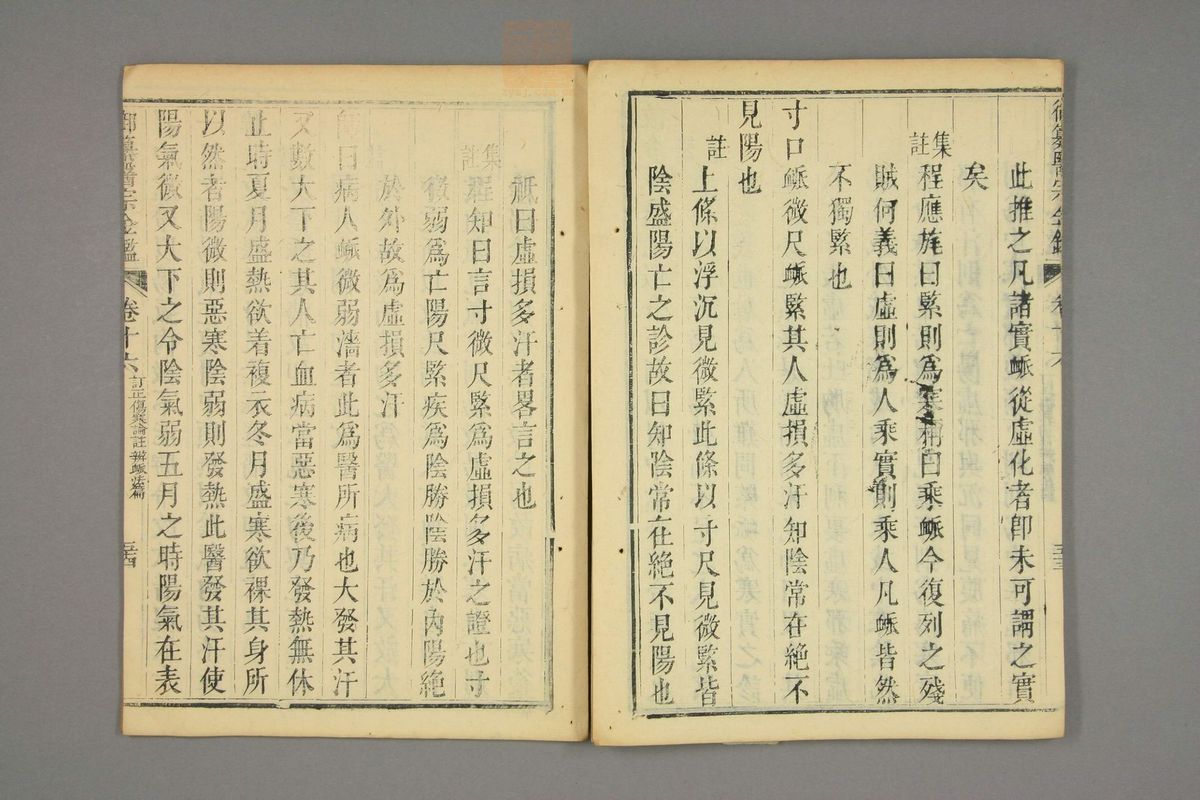 御纂醫宗金鑑
卷十六
三三
此推之凡諸實脈從虛化者卽未可謂之實
矣
集註
程應旄曰緊則爲寒稱曰乘脈今復列之殘
賊何義曰虛則爲人乘實則乘人凡脈皆然
不獨緊也
寸口脈微尺脈緊其人虛損多汗知陰常在絶不
見陽也
註
上條以浮沉見微緊此條以寸尺見微緊皆
陰盛陽亡之診故曰知陰常在絶不見陽也
祗曰虛損多汗者畧言之也
集註
程知曰言寸微尺緊爲虛損多汗之證也寸
微弱爲亡陽尺緊疾爲陰勝陰勝於內陽絶
於外故爲虛損多汗
師曰病人脈微弱濇者此爲醫所病也大發其汗
又數大下之其人亡血病當惡寒後乃發熱無休
止時夏月盛熱欲着複衣冬月盛寒欲裸其身所
以然者陽微則惡寒陰弱則發熱此醫發其汗使
陽氣微又大下之令陰氣弱五月之時陽氣在表
御纂醫宗金鑑
卷十六
訂正傷寒論註辨脈法篇
三四